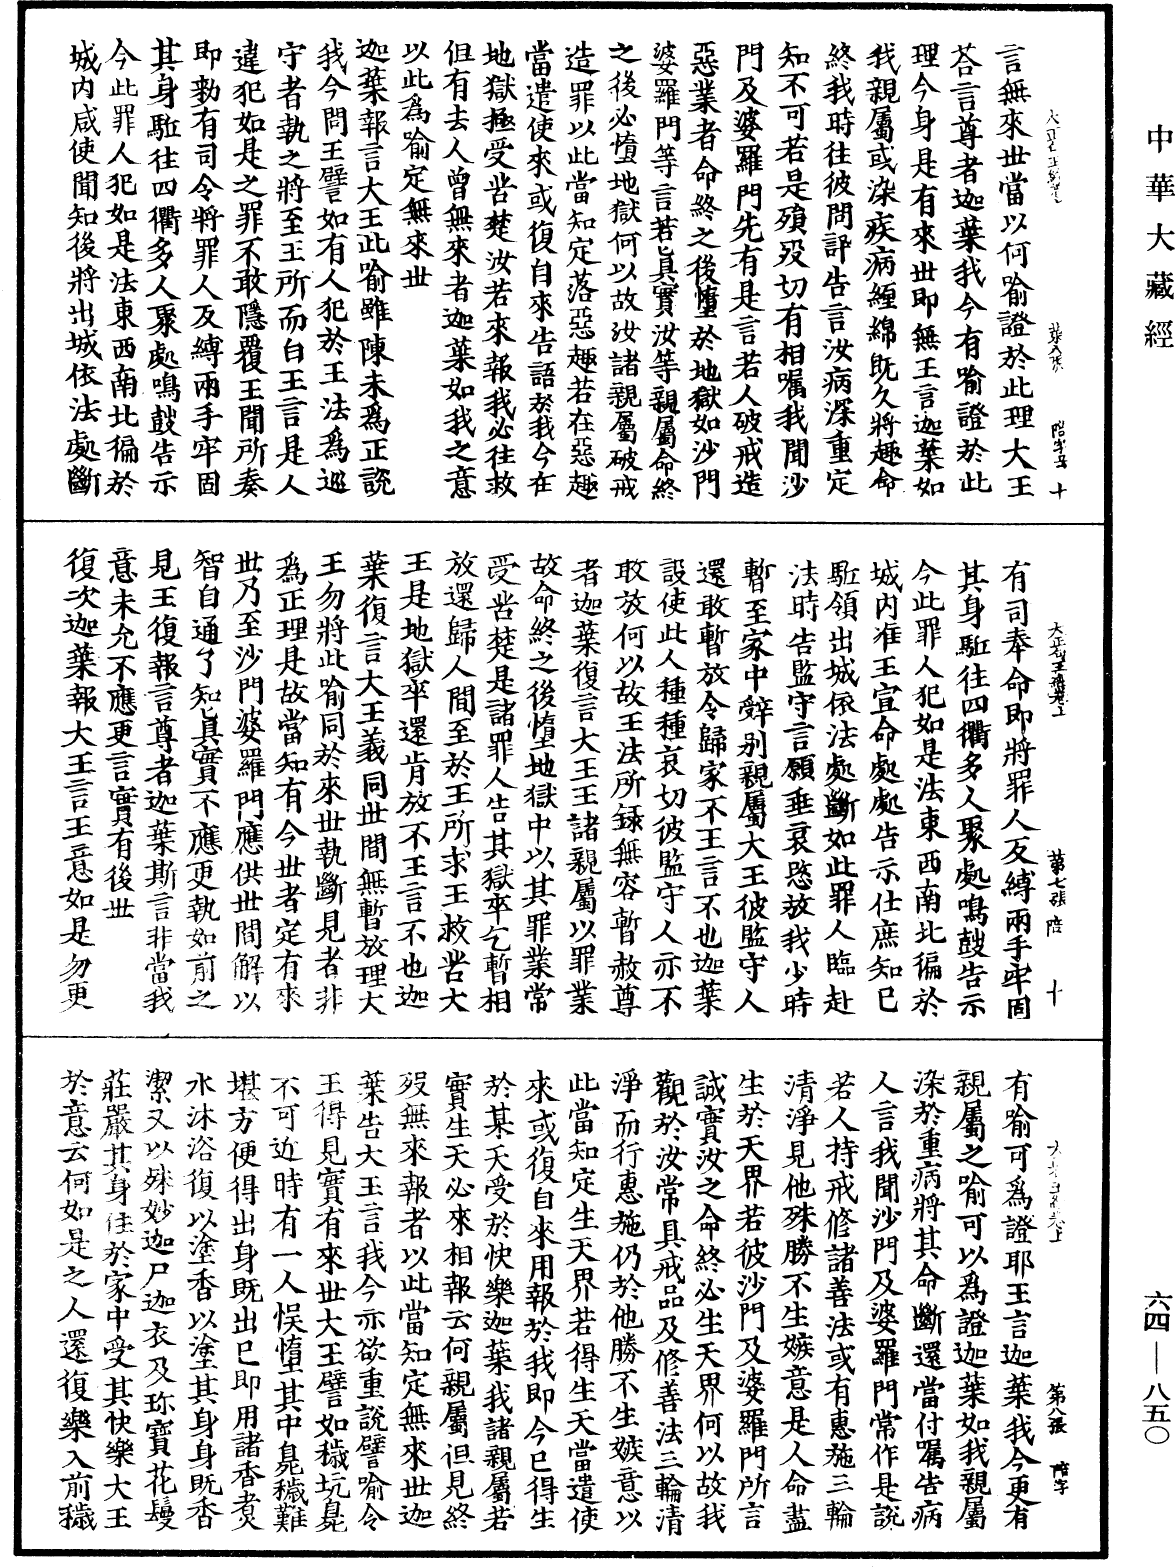 中華大藏經
言無來世當以何喻證於此理大王
荅言尊者迦葉我今有喻證於此
理今身是有來世即無王言迦葉如
我親屬或染疾病纏綿既久將趣命
終我時往彼問訃告言汝病深重定
知不可若是殞歿切有相囑我聞沙
門及婆羅門先有是言若人破戒造
惡業者命終之後墮於地獄如沙門
婆羅門等言若真實汝等親屬命終
之後必墮地獄何以故汝諸親屬破戒
造罪以此當知定落惡趣若在惡趣
當遣使來或復自來告語於我今在
地獄極受苦楚汝若來報我必往救
但有去人曾無來者迦葉如我之意
以此為喻定無來世
迦葉報言大王此喻雖陳未為正說
我今問王譬如有人犯於王法為巡
守者執之將至王所而白王言是人
違犯如是之罪不敢隱覆王聞所奏
即勑有司令將罪人反縛兩手牢固
其身駈往四衢多人聚處鳴鼓告示
今此罪人犯如是法東西南北徧於
城內咸使聞知後將出城依法處斷
有司奉命即將罪人反縛兩手牢固
其身駈往四衢多人聚處鳴鼓告示
今此罪人犯如是法東西南北徧於
城內准王宣命處處告示仕庶知已
駈領出城依法處斷如此罪人臨赴
法時告監守言願垂哀愍放我少時
暫至家中辭别親屬大王彼監守人
還敢暫放令歸家不王言不也迦葉
設使此人種種哀切彼監守人亦不
敢放何以故王法所録無容暫赦尊
者迦葉復言大王王諸親屬以罪業
故命終之後墮地獄中以其罪業常
受苦楚是諸罪人告其獄卒乞暫相
放還歸人間至於王所求王救苦大
王是地獄卒還肯放不王言不也迦
葉復言大王義同世間無暫放理大
王勿將此喻同於來世執斷見者非
為正理是故當知有今世者定有來
世乃至沙門婆羅門應供世間解以
智自通了知真實不應更執如前之
見王復報言尊者迦葉斯言非當我
意未允不應更言實有後世
復次迦葉報大王言王意如是勿更
有喻可為證耶王言迦葉我今更有
親屬之喻可以為證迦葉如我親屬
染於重病將其命斷還當付囑告病
人言我聞沙門及婆羅門常作是說
若人持戒修諸善法或有惠施三輪
清淨見他殊勝不生嫉意是人命盡
生於天界若彼沙門及婆羅門所言
誠實汝之命終必生天界何以故我
觀於汝常具戒品及修善法三輪清
淨而行惠施仍於他勝不生嫉意以
此當知定生天界若得生天當遣使
來或復自來用報於我即今已得生
於某天受於快樂迦葉我諸親屬若
實生天必來相報云何親屬但見終
歿無來報者以此當知定無來世迦
葉告大王言我今亦欲重說譬喻令
王得見實有來世大王譬如穢坑臭
不可近時有一人悞墮其中臭穢難
堪方便得出身既出已即用諸香煑
水沐浴復以塗香以塗其身身既香
潔又以殊妙迦尸迦衣及珎寶花鬘
莊嚴其身住於家中受其快樂大王
於意云何如是之人還復樂入前穢
第七張 陪
第八張 陪字
六四—八五〇